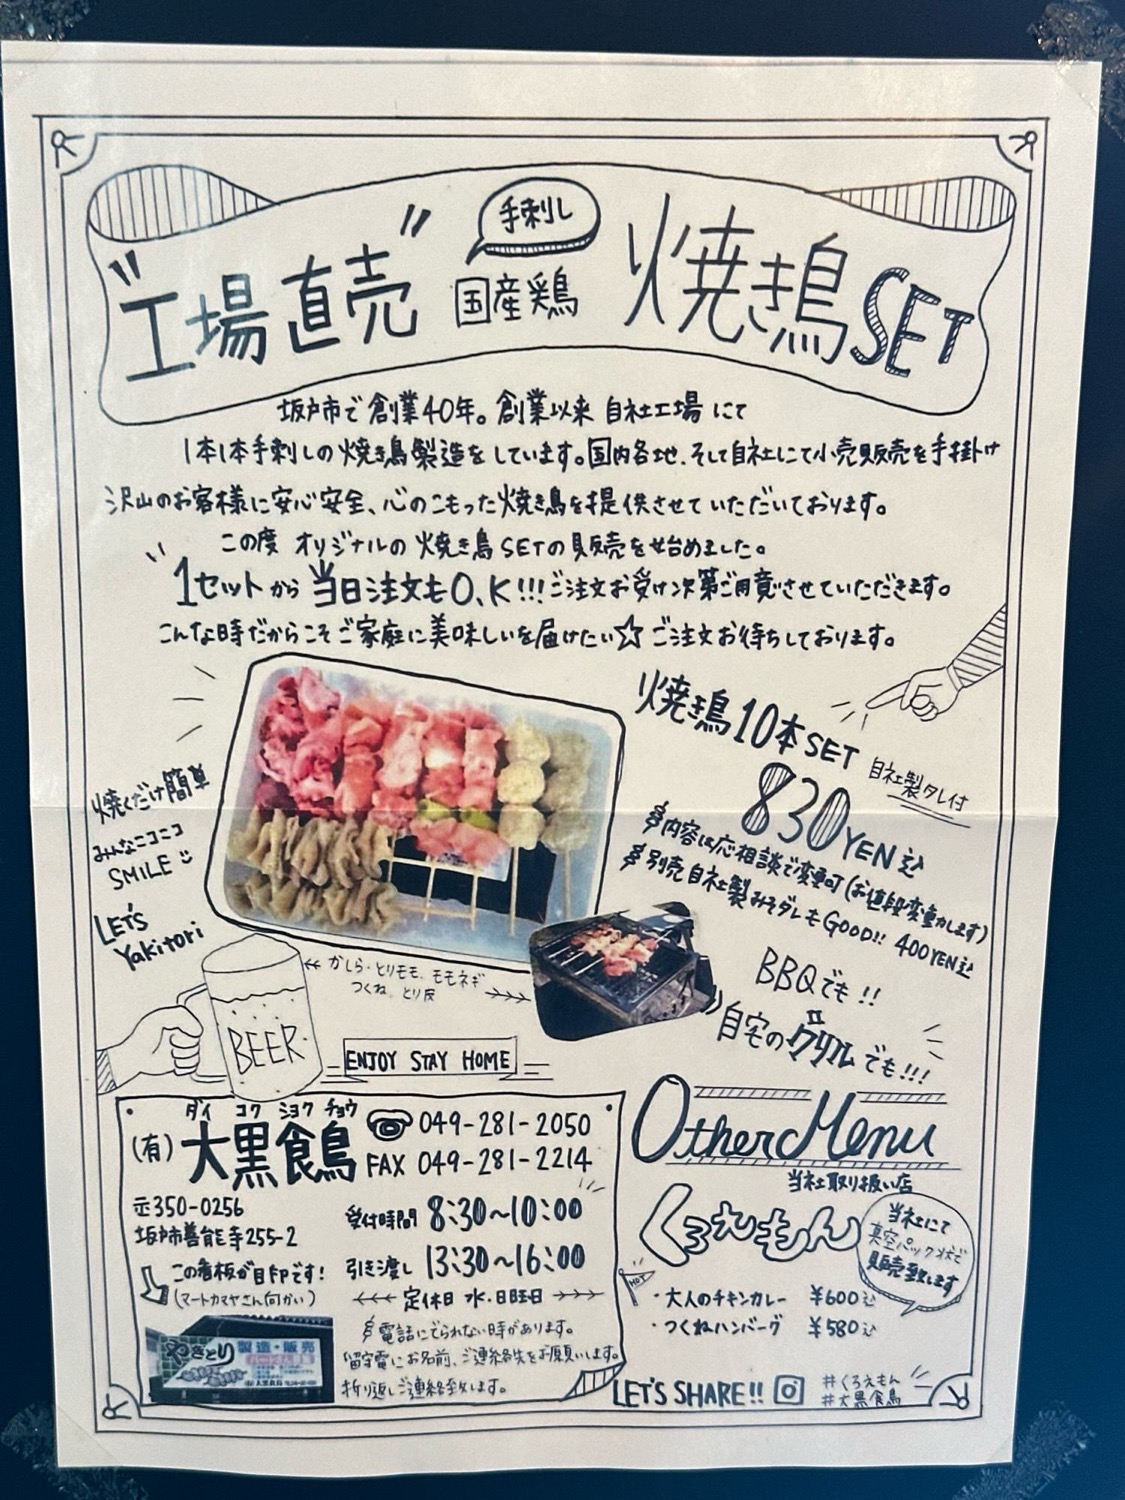 "工場直売"
手刺し
国産鶏
焼き鳥SET
坂戸市で創業40年。創業以来 自社工場 にて
1本1本手刺しの焼き鳥製造をしています。国内各地、そして自社にて小売販売を手掛け
沢山のお客様に安心安全、心のこもった焼き鳥を提供させていただいております。
この度 オリジナルの 焼き鳥SETの販売を始めました。
1セットから当日注文もO.K!!!ご注文お受け次第ご用意させていただきます。
こんな時だからこそご家庭に美味しいを届けたい☆ ご注文お待ちしております。
焼き鳥10本SET
自社製タレ付
830YEN込
内容は応相談で変更可(お値段変動します)
別売 自社製みそダレもGOOD!! 400YEN込
焼くだけ簡単
みんなニコニコ
SMILE
LET's
Yakitori
かしら・とりモモ、モモネギ
つくね、とり皮
BBQでも!!
自宅のグリルでも!!!
BEER
ENJOY STAY HOME
ダイ コク ショク チョウ
(有)大黒食鳥
049-281-2050
FAX 049-281-2214
〒350-0256
坂戸市善能寺255-2
この看板が目印です!
(マートカマヤさん向かい)
やきとり 製造・販売
受付時間 8:30~10:00
引き渡し 13:30~16:00
定休日 水・日曜日
電話にでられない時があります。
留守電にお名前、ご連絡先をお願いします。
折り返しご連絡致します。
Other Menu
当社取り扱い店
くろえもん
当社にて
真空パック状で
販売致します
HOT
・大人のチキンカレー ¥600込
・つくねハンバーグ ¥580込
LET'S SHARE!!
#くろえもん
#大黒食鳥